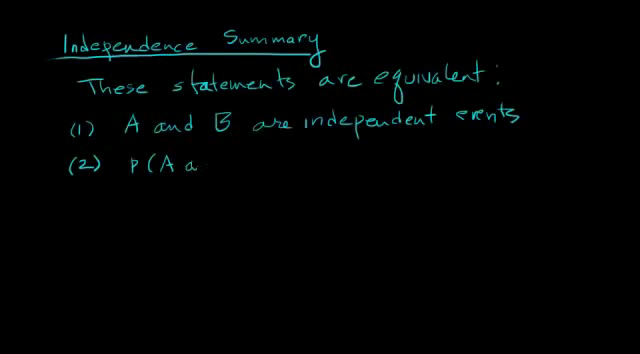 Independence Summary
These statements are equivalent:
(1) A and B are independent events
(2) P(A a